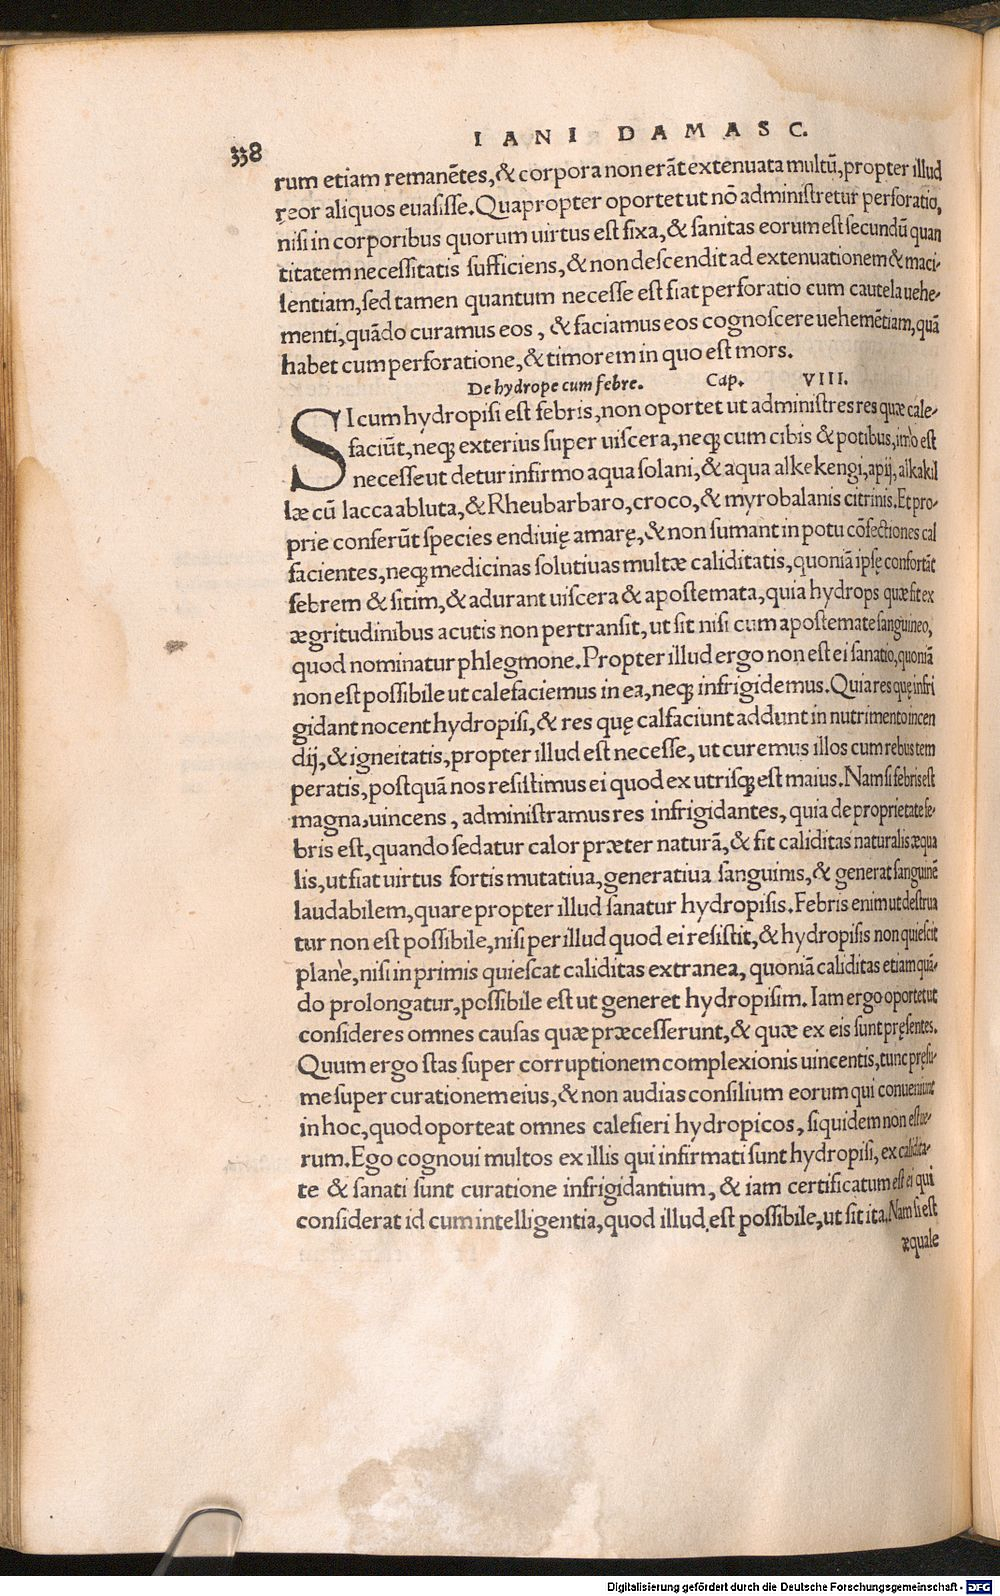 338
IANI DAMASC.
rum etiam remanẽtes,& corpora non erãt extenuata multũ,propter illud
reor aliquos euasisse.Quapropter oportet ut nõ administretur perforatio,
nisi in corporibus quorum uirtus est fixa,& sanitas eorum est secundũ quan
titatem necessitatis sufficiens,& non descendit ad extenuationem & maci-
lentiam,sed tamen quantum necesse est fiat perforatio cum cautela uehe-
menti,quãdo curamus eos, & faciamus eos cognoscere uehemẽtiam,quã
habet cum perforatione,& timorem in quo est mors.
De hydrope cum febre. Cap. VIII.
SI cum hydropisi est febris,non oportet ut administres res quæ cale-
faciũt,neq; exterius super uiscera,neq; cum cibis & potibus,imò est
necesse ut detur infirmo aqua solani,& aqua alkekengi,apij,alkakil
læ cũ lacca abluta,& Rheubarbaro,croco,& myrobalanis citrinis.Et pro-
prie conferũt species endiuię amarę,& non sumant in potu cõfectiones cal
facientes,neq; medicinas solutiuas multæ caliditatis,quoniã ipsę confortãt
febrem & sitim,& adurant uiscera & apostemata,quia hydrops quæ fit ex
ægritudinibus acutis non pertransit,ut sit nisi cum apostemate sanguineo,
quod nominatur phlegmone.Propter illud ergo non est ei sanatio,quoniã
non est possibile ut calefaciemus in ea,neq; infrigidemus.Quia res quę infri
gidant nocent hydropisi,& res quę calfaciunt addunt in nutrimento incen
dij,& igneitatis,propter illud est necesse, ut curemus illos cum rebus tem
peratis,postquã nos resistimus ei quod ex utrisq; est maius.Nam si febris est
magna,uincens, administramus res infrigidantes, quia de proprietate fe-
bris est,quando sedatur calor præter naturã,& fit caliditas naturalis æqua
lis,ut fiat uirtus fortis mutatiua,generatiua sanguinis,& generat sanguinẽ
laudabilem,quare propter illud sanatur hydropisis.Febris enim ut destrua
tur non est possibile,nisi per illud quod ei resistit,& hydropisis non quiescit
planè,nisi in primis quiescat caliditas extranea, quoniã caliditas etiam quã-
do prolongatur,possibile est ut generet hydropisim.Iam ergo oportet ut
consideres omnes causas quæ præcesserunt,& quæ ex eis sunt pręsentes.
Quum ergo stas super corruptionem complexionis uincentis,tunc pręsu-
me super curationem eius,& non audias consilium eorum qui conueniunt
in hoc,quod oporteat omnes calefieri hydropicos, siquidem non est ue-
rum.Ego cognoui multos ex illis qui infirmati sunt hydropisi, ex calidita-
te & sanati sunt curatione infrigidantium, & iam certificatum est ei qui
considerat id cum intelligentia,quod illud est possibile,ut sit ita.Nam si est
æquale
Digitalisierung gefördert durch die Deutsche Forschungsgemeinschaft - DFG